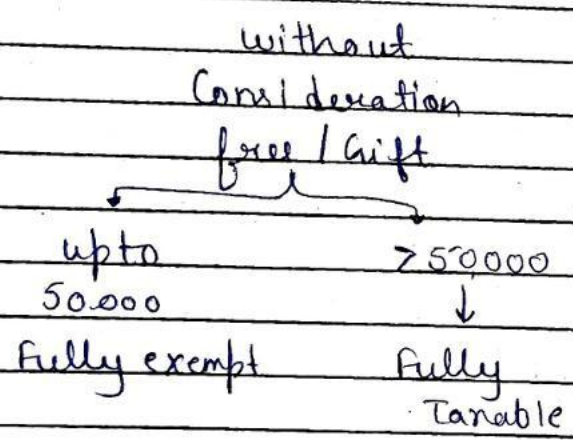 without
Consideration
free / Gift
upto >50000
50.000 ↓
Fully exempt Fully
Taxable